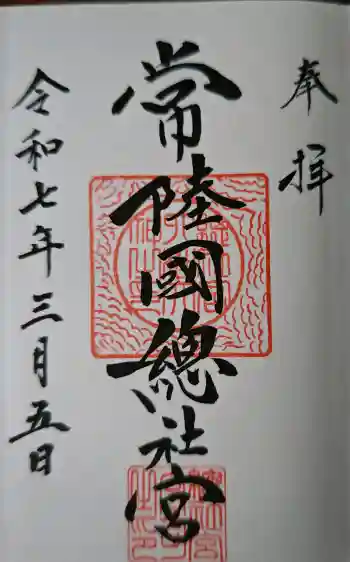 奉拝
常陸國總社宮
令和七年三月五日